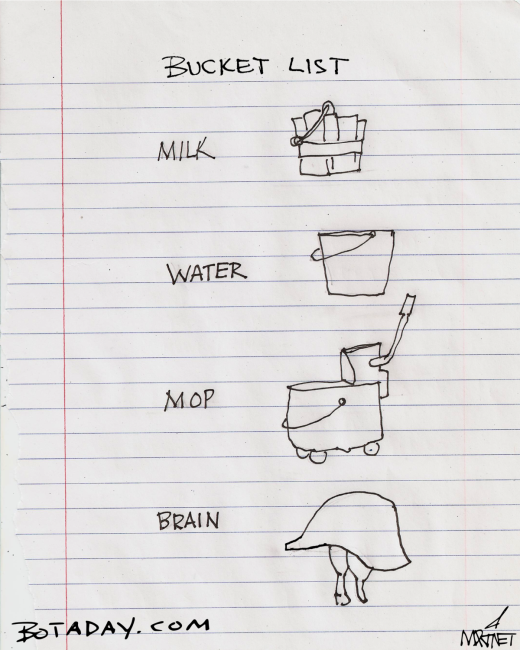 BUCKET LIST
MILK
WATER
MOP
BRAIN
BOTADAY.COM